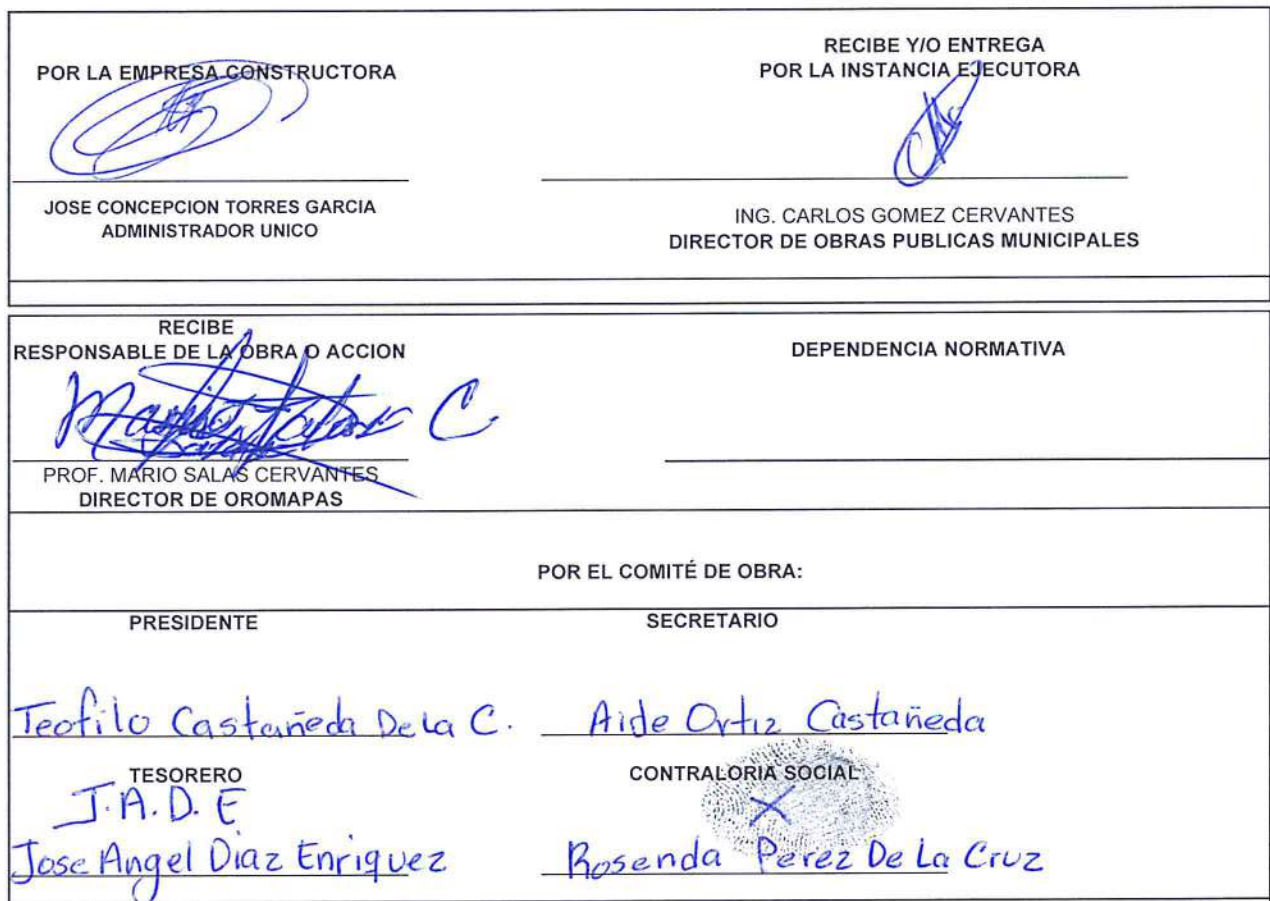 POR LA EMPRESA CONSTRUCTORA
JOSE CONCEPCION TORRES GARCIA
ADMINISTRADOR UNICO
RECIBE Y/O ENTREGA
POR LA INSTANCIA EJECUTORA
ING. CARLOS GOMEZ CERVANTES
DIRECTOR DE OBRAS PUBLICAS MUNICIPALES
RECIBE
RESPONSABLE DE LA OBRA O ACCION
Mario Salas C
PROF. MARIO SALAS CERVANTES
DIRECTOR DE OROMAPAS
DEPENDENCIA NORMATIVA
POR EL COMITÉ DE OBRA:
PRESIDENTE
Teofilo Castañeda De La C.
SECRETARIO
Aide Ortiz Castañeda
TESORERO
J.A.D.E
Jose Angel Diaz Enriquez
CONTRALORIA SOCIAL
X
Rosenda Perez De La Cruz